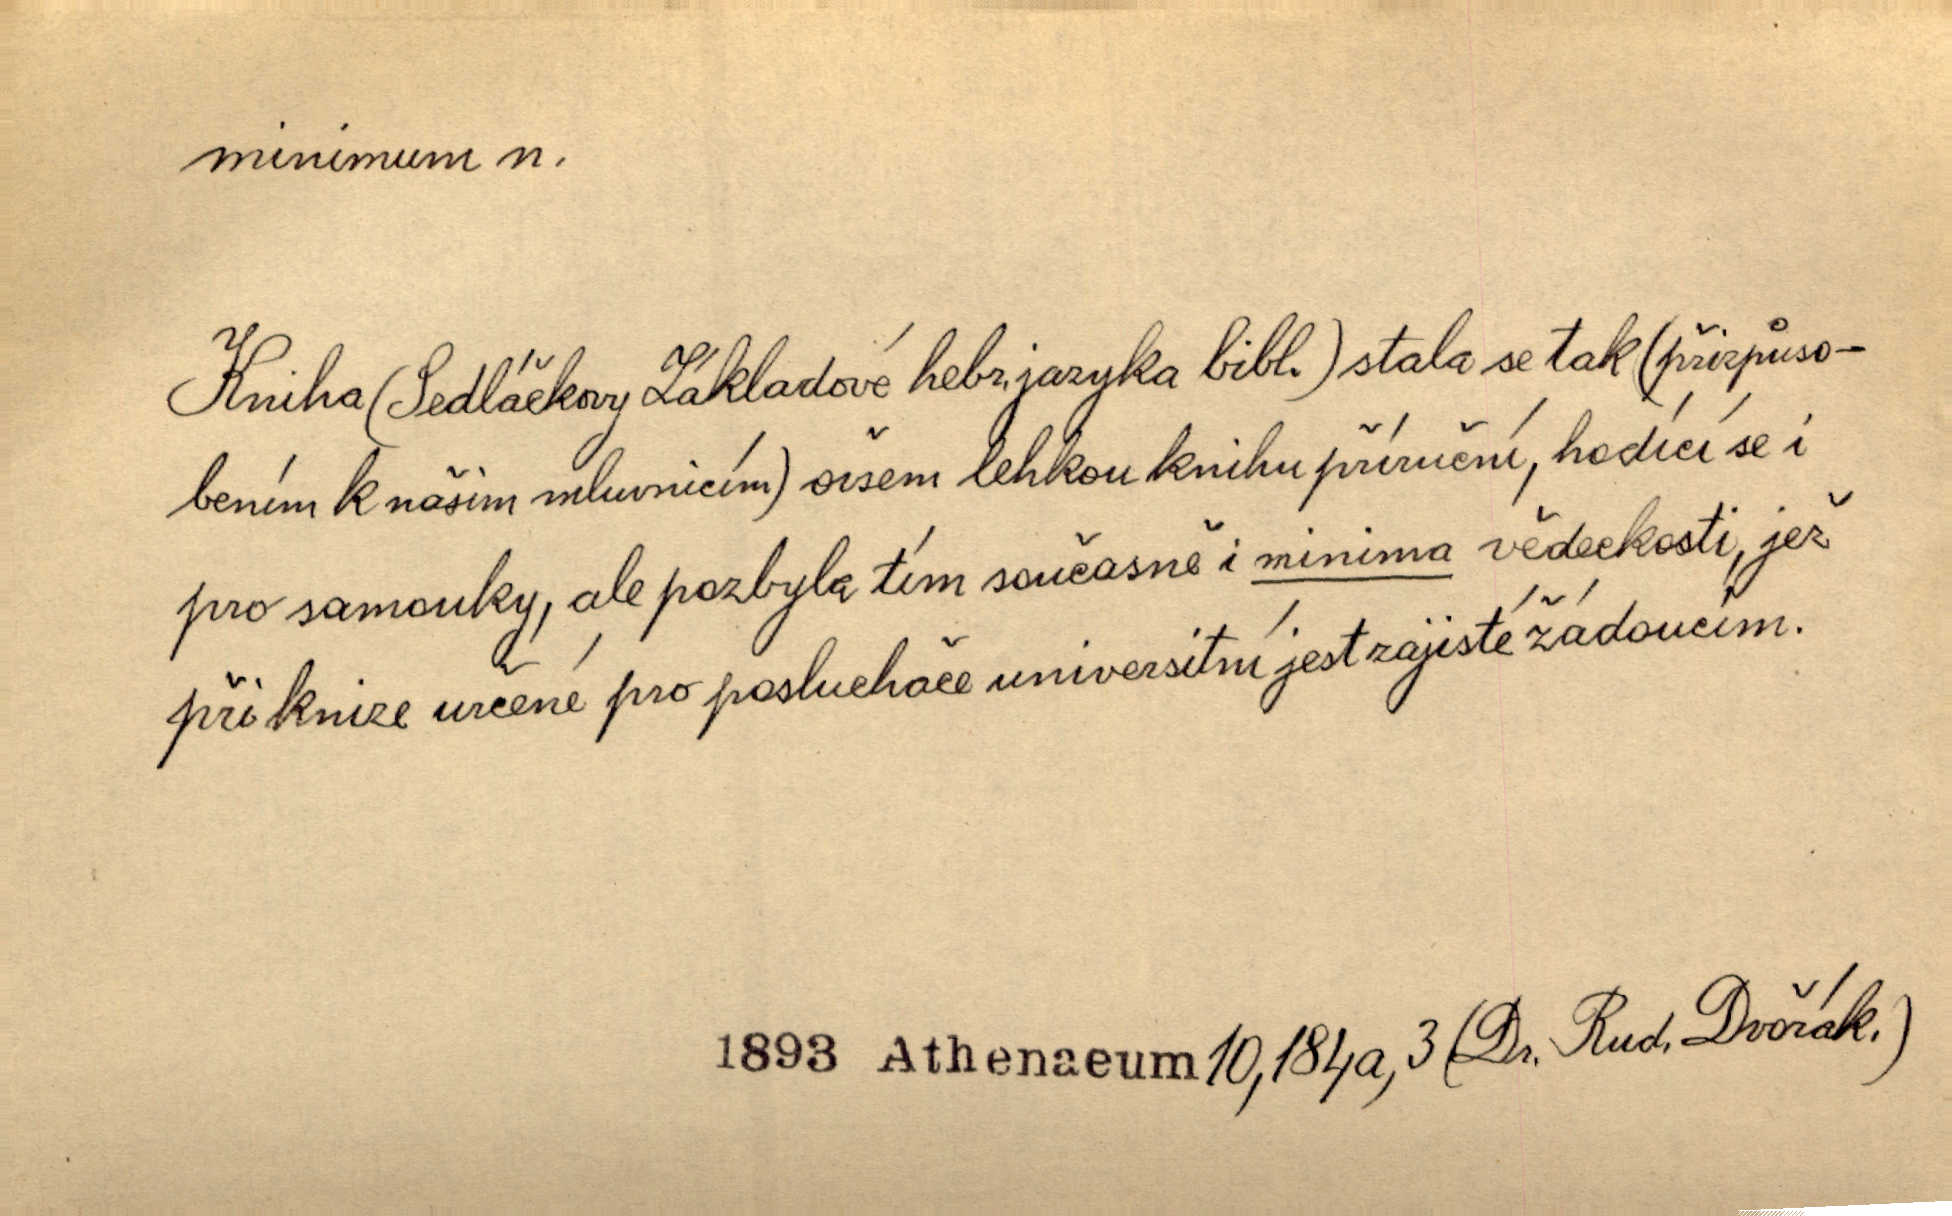 minimum n.
Kniha (Sedláčkovy Základové hebr. jazyka bibl.) stala se tak (přizpůso-
bením k našim mluvnicím) ovšem lehkou knihu příruční, hodící se i
pro samouky, ale pozbyla tím současně i minima vědeckosti, jež
při knize určené pro posluchače universitní jest zajisté žádoucím.
1893 Athenaeum 10, 184a, 3 (Dr. Rud. Dvořák.)